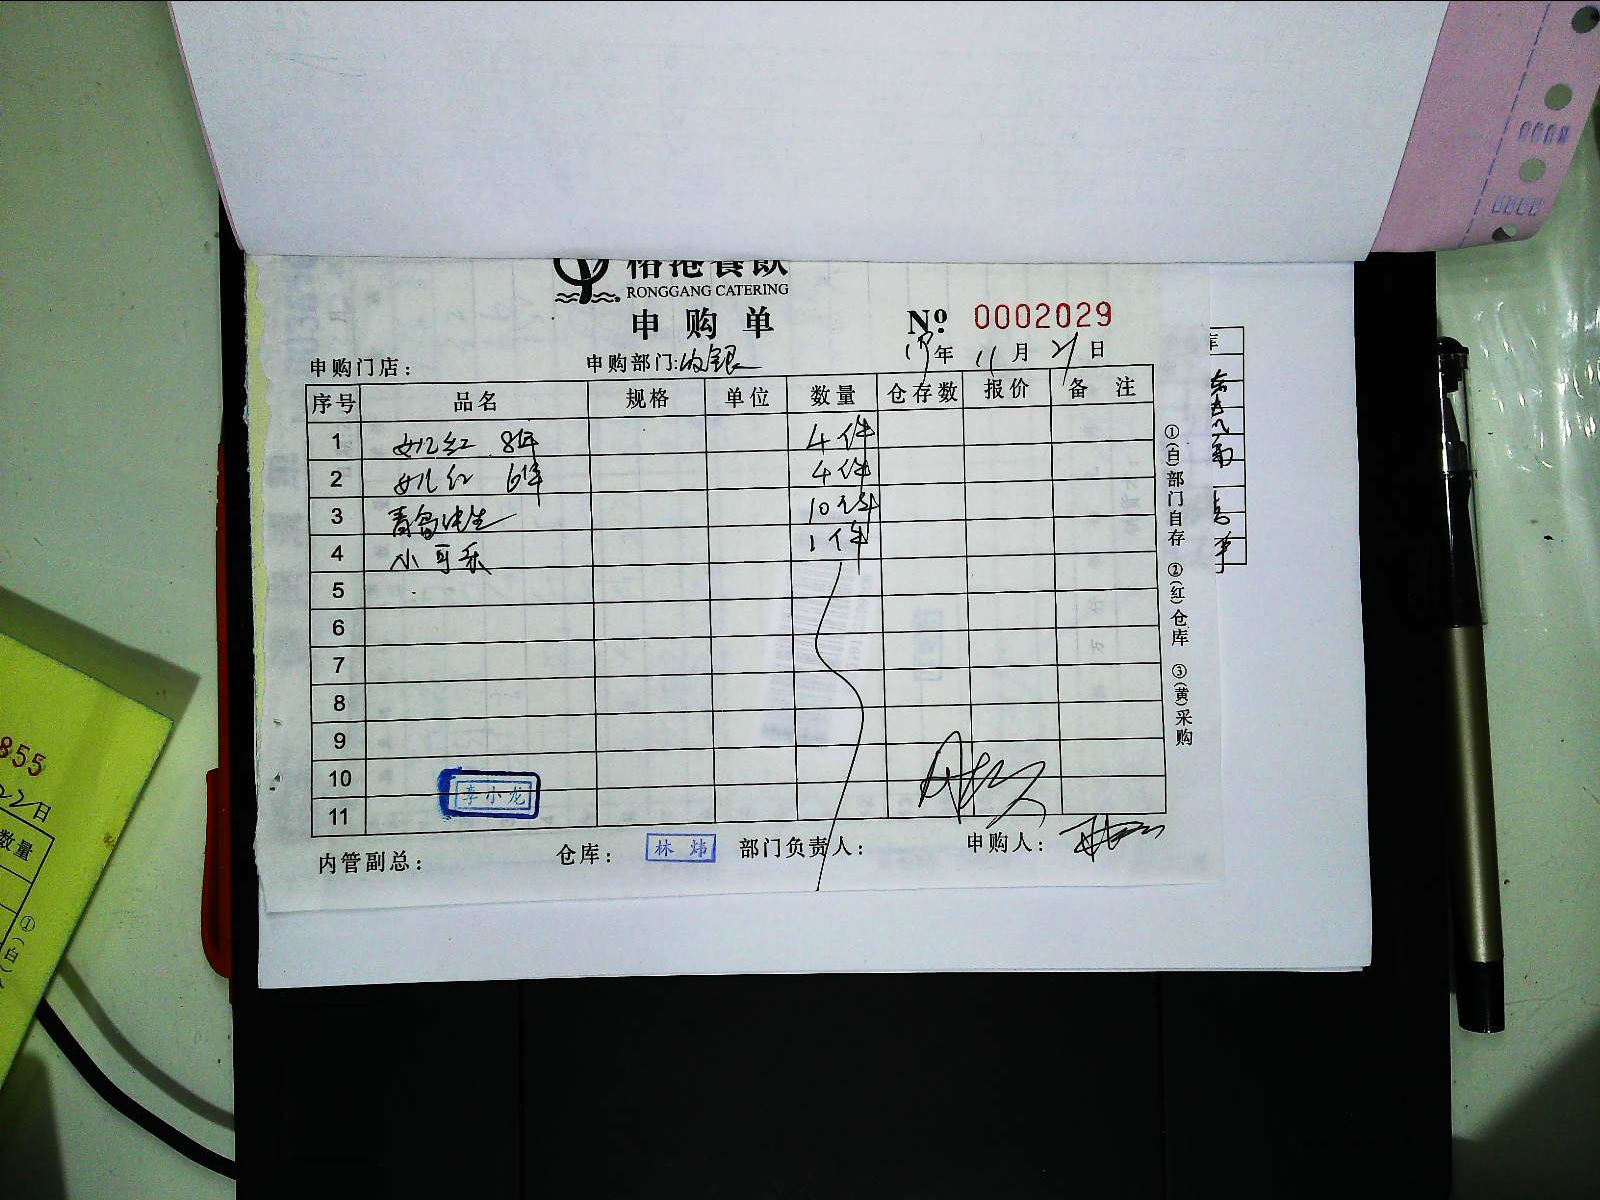 RONGGANG CATERING
申购单 Nº 0002029
申购门店: 申购部门:收银 年 11 月 21 日
序号 品名 规格 单位 数量 仓存数 报价 备注
1 女儿红 8年 4件
2 女儿红 6年 4件
3 青岛纯生 10件
4 小可乐 1件
5
6
7
8
9
10
11
李小龙
内管副总: 仓库: 林炜 部门负责人: 申购人:
①(白)部门自存 ②(红)仓库 ③(黄)采购
855
22日
数量
①(白)